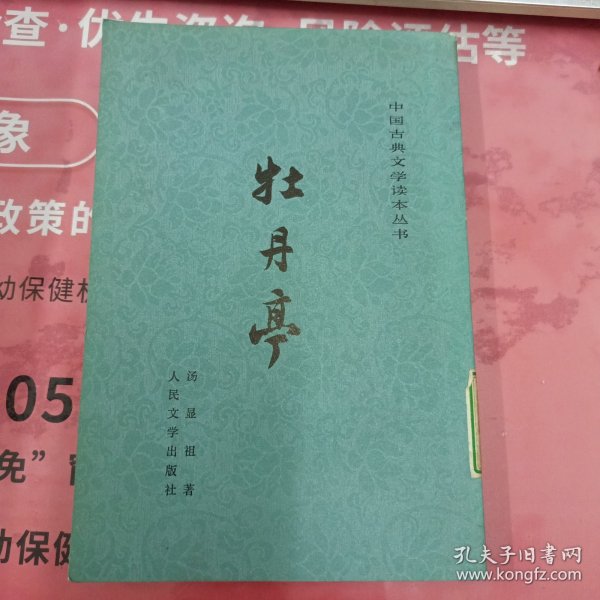 查·优生咨询·风险评估等
象
政策的
幼保健机
05
免”
幼保健
中国古典文学读本丛书
牡丹亭
汤显祖著
人民文学出版社
孔夫子旧书网
www.kongfz.com